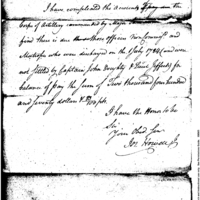 I have completed the accounts of pay in the
Corps of Artillery commanded by Major
find there is due those officers non Commiss'd and
Musicks who were discharged on the 1 July 1784 (and were
not settled by Captain John Doughty & Lieut Jeffers) for
balance of Pay the sum of Two thousand four hundred
and seventy dollars &
I have the Honor to be
Sir
Your Obed Ser
Jos Howell Jr